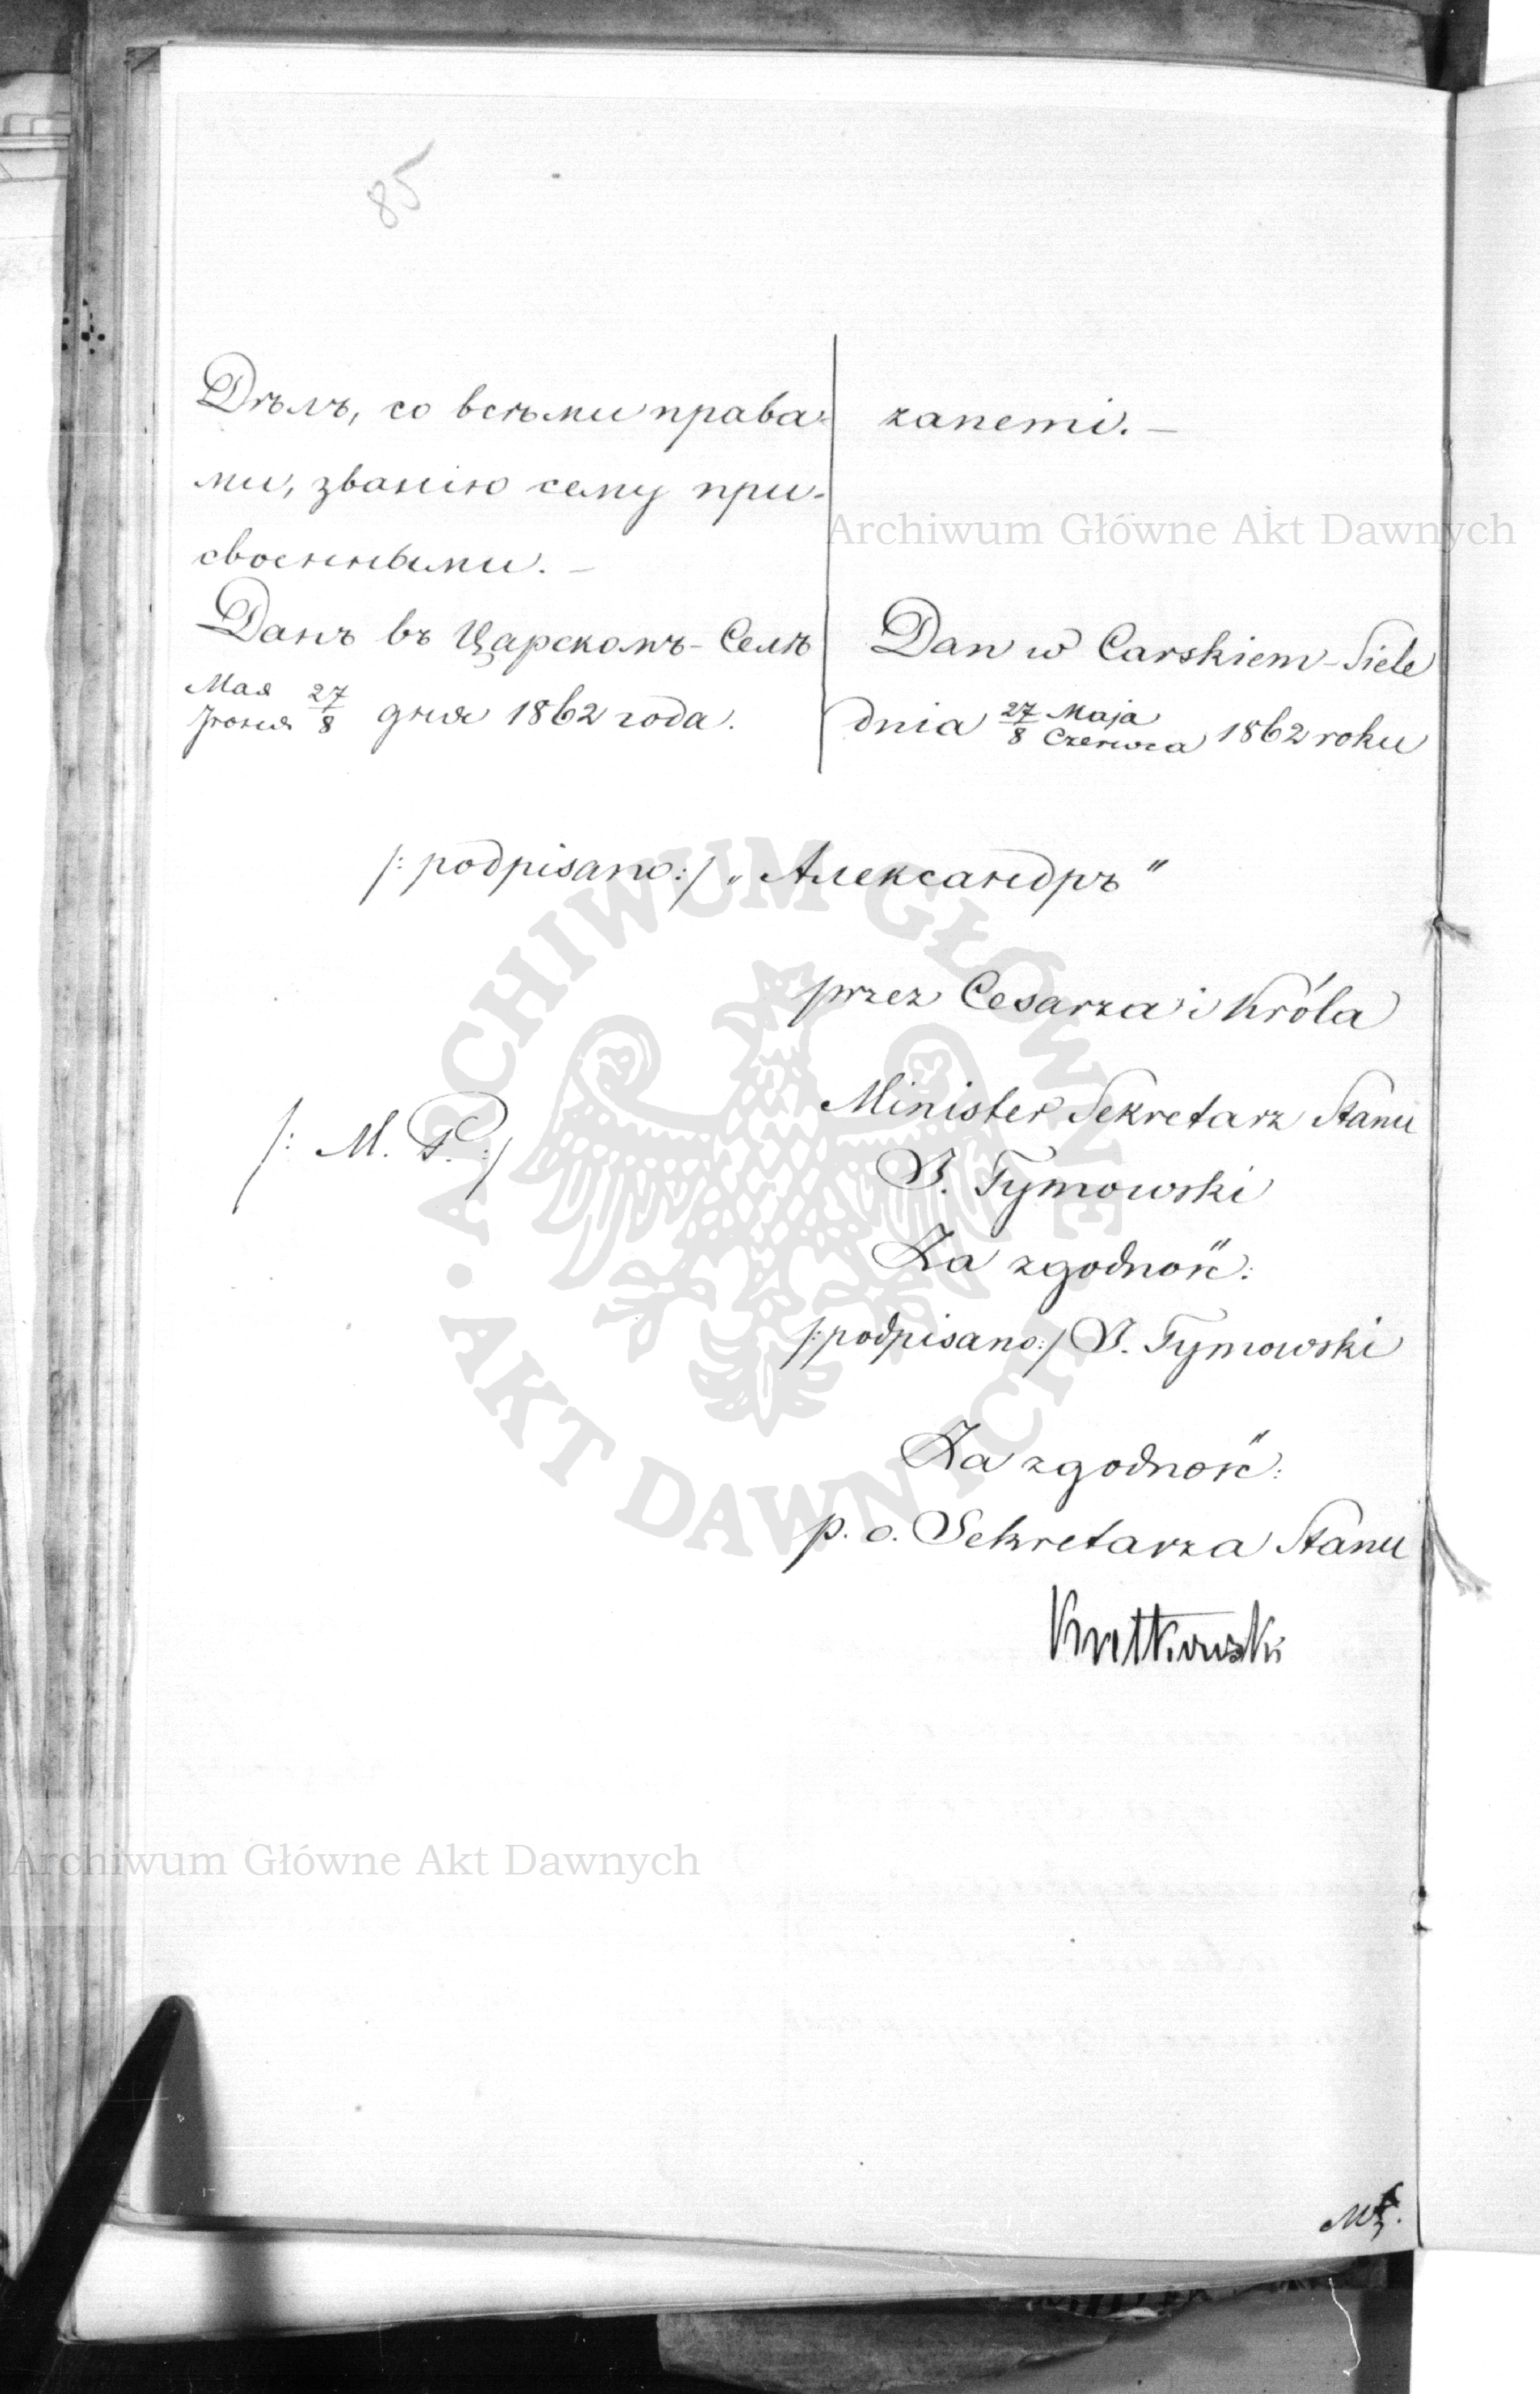 85
Дѣлъ, со всѣми права-
ми, званію сему при-
своенными. —
Данъ въ Царскомъ-Селѣ
Мая 27
Іюня 8 дня 1862 года.
zanemi. —
Dan w Carskiem-Siele
dnia 27 Maja
8 Czerwca 1862 roku
/: podpisano :/ „Александръ"
przez Cesarza i Króla
Minister Sekretarz Stanu
/: M. P. :/
J. Tymowski
Za zgodność:
/: podpisano :/ J. Tymowski
Za zgodność:
p. o. Sekretarza Stanu
Archiwum Główne Akt Dawnych
ARCHIWUM GŁÓWNE AKT DAWNYCH
Archiwum Główne Akt Dawnych